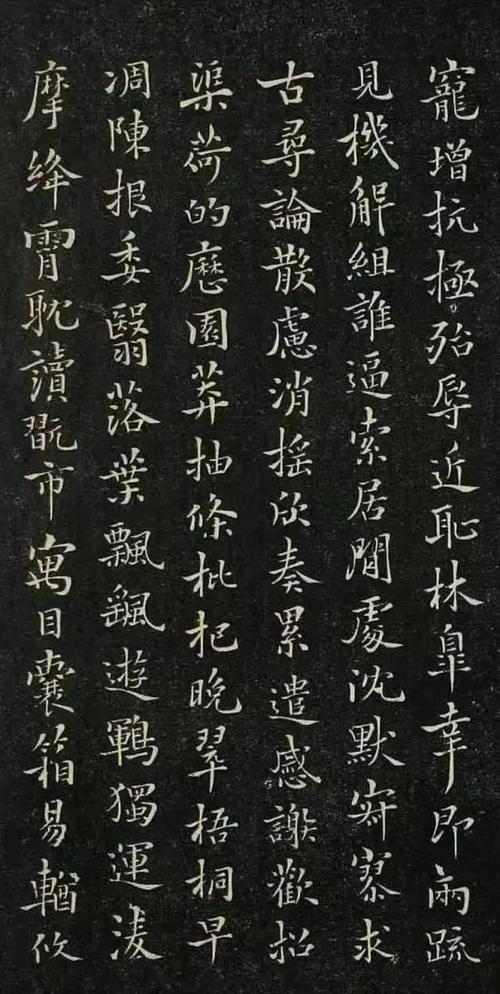 寵增抗極殆辱近恥林臯幸即兩疏
見機解組誰逼索居閒處沈默寂寥求
古尋論散慮消摇欣奏累遣慼謝歡招
渠荷的歷園莽抽條枇杷晚翠梧桐早
凋陳根委翳落葉飄颻遊鵾獨運凌
摩絳霄耽讀翫市寓目囊箱易輶攸